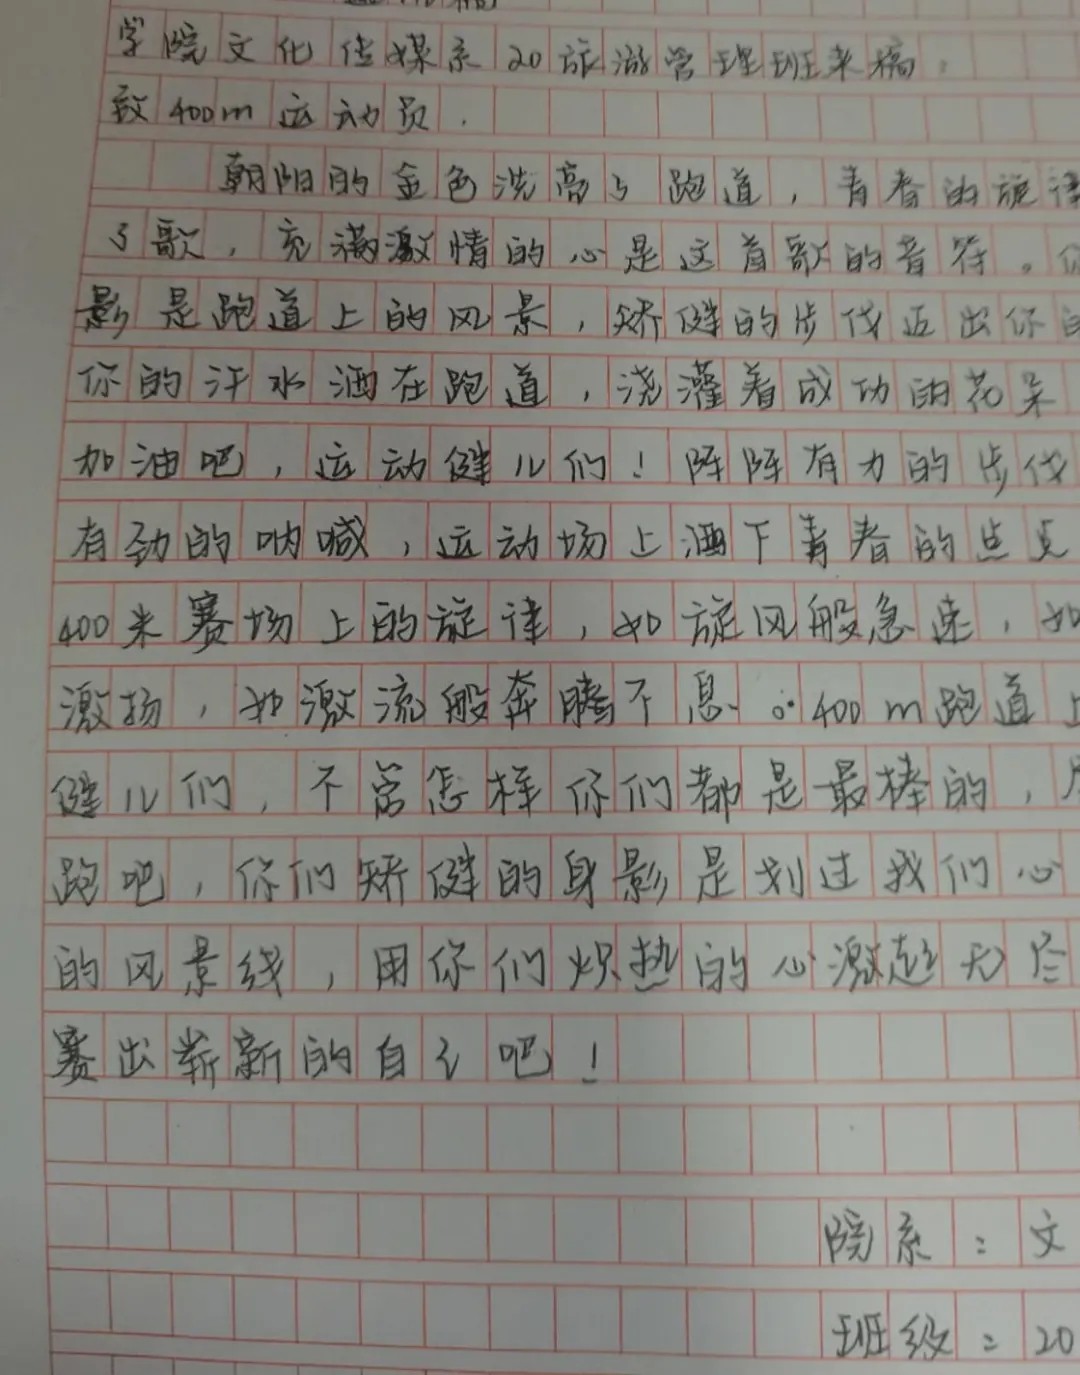 学院文化传媒系20旅游管理班来稿：
致400m运动员.
朝阳的金色洗亮了跑道，青春的旋律
了歌，充满激情的心是这首歌的音符。你
影是跑道上的风景，矫健的步伐迈出你的
你的汗水洒在跑道，浇灌着成功的花朵
加油吧，运动健儿们！阵阵有力的步伐
有劲的呐喊，运动场上洒下青春的点点
400米赛场上的旋律，如旋风般急速，如
激扬，如激流般奔腾不息。400m跑道上
健儿们，不管怎样你们都是最棒的，尽
跑吧，你们矫健的身影是划过我们心
的风景线，用你们炽热的心激起无尽
赛出崭新的自己吧！
院系：文
班级：20